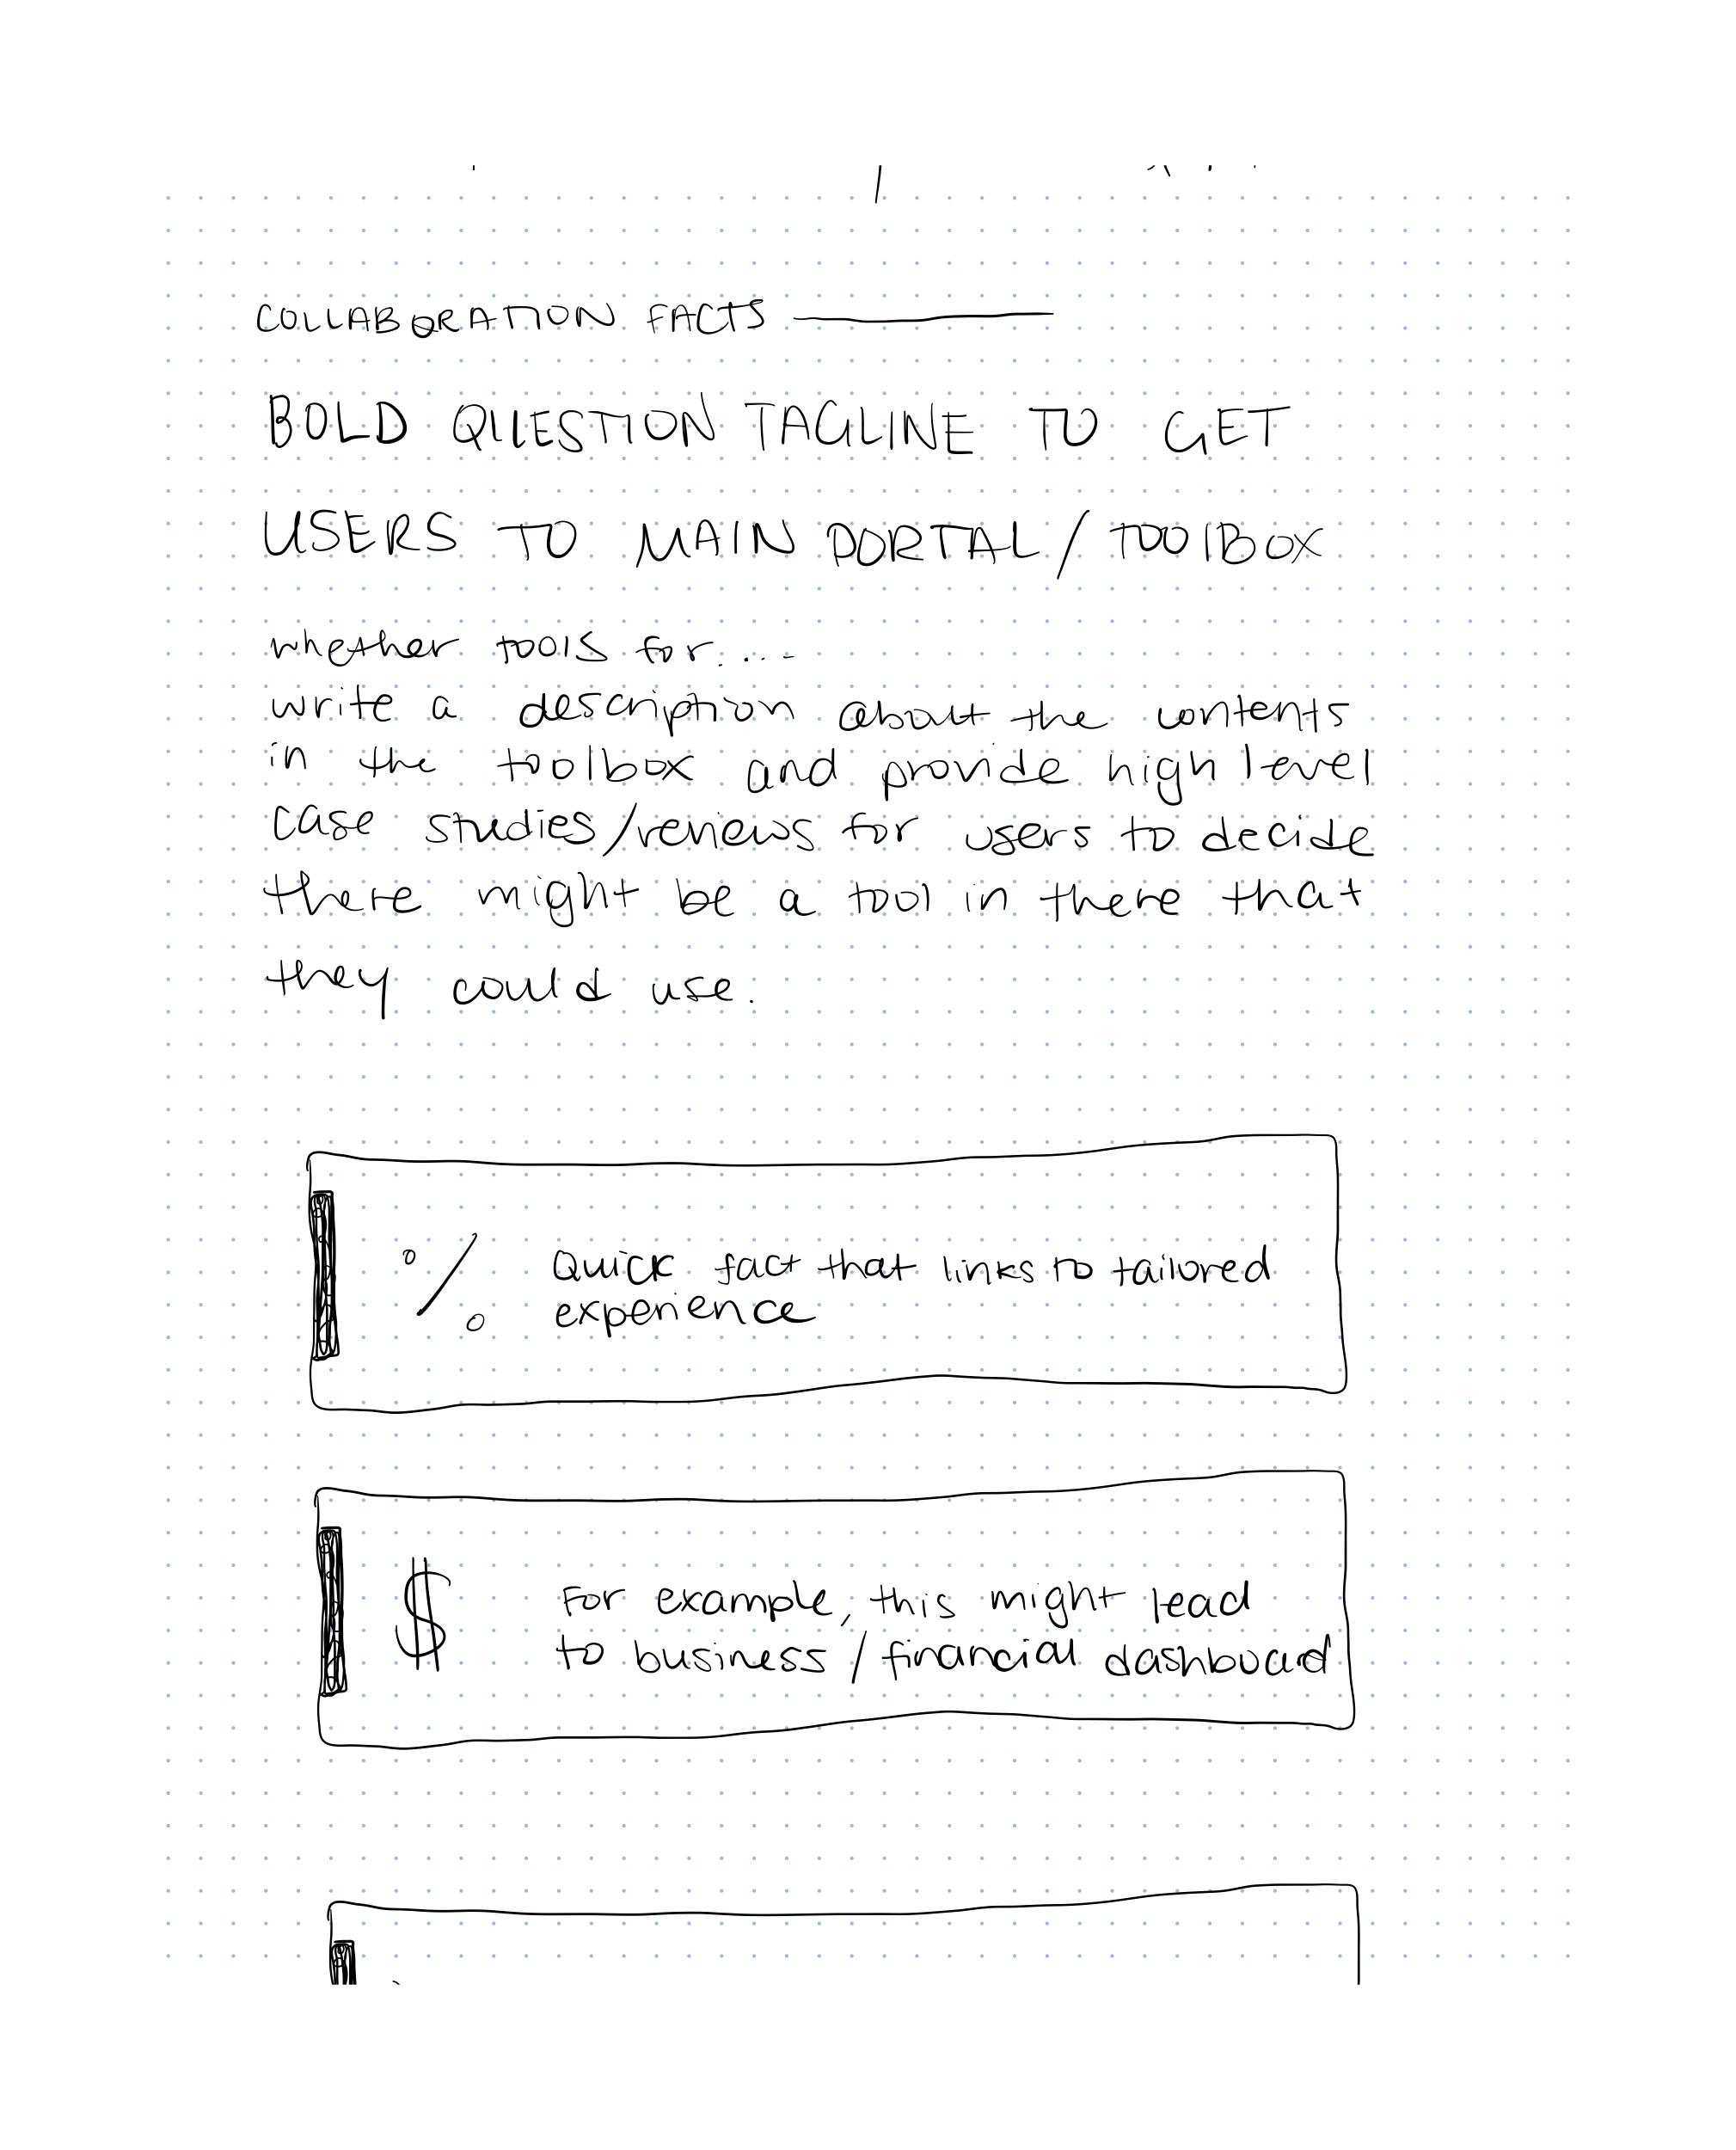 COLLABORATION FACTS
BOLD QUESTION TAGLINE TO GET
USERS TO MAIN PORTAL/TOOlBOX
whether tools for....
write a description about the contents
in the toolbox and provide high level
case studies/reviews for users to decide
there might be a tool in there that
they could use.
% Quick fact that links to tailored
experience
$ For example, this might lead
to business / financial dashboard